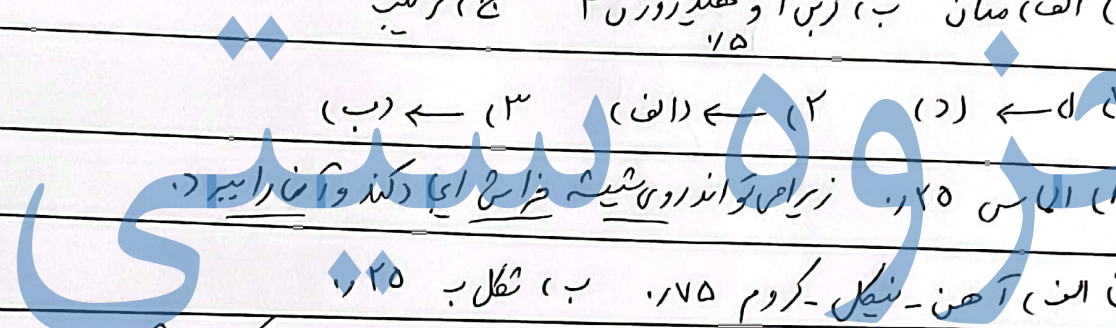 الف) متان ب) ج) ترکیب
۱/۵
۱) ← (د) ۲) ← (الف) ۳) ← (ب)
الماس ۰٫۲۵ زیرا می تواند روی شیشه خراش ایجاد کند و آن را ببرد.
الف) آهن - نیکل - کروم ۰٫۷۵ ب) شکل ب ۰٫۲۵
جزوه سیتی